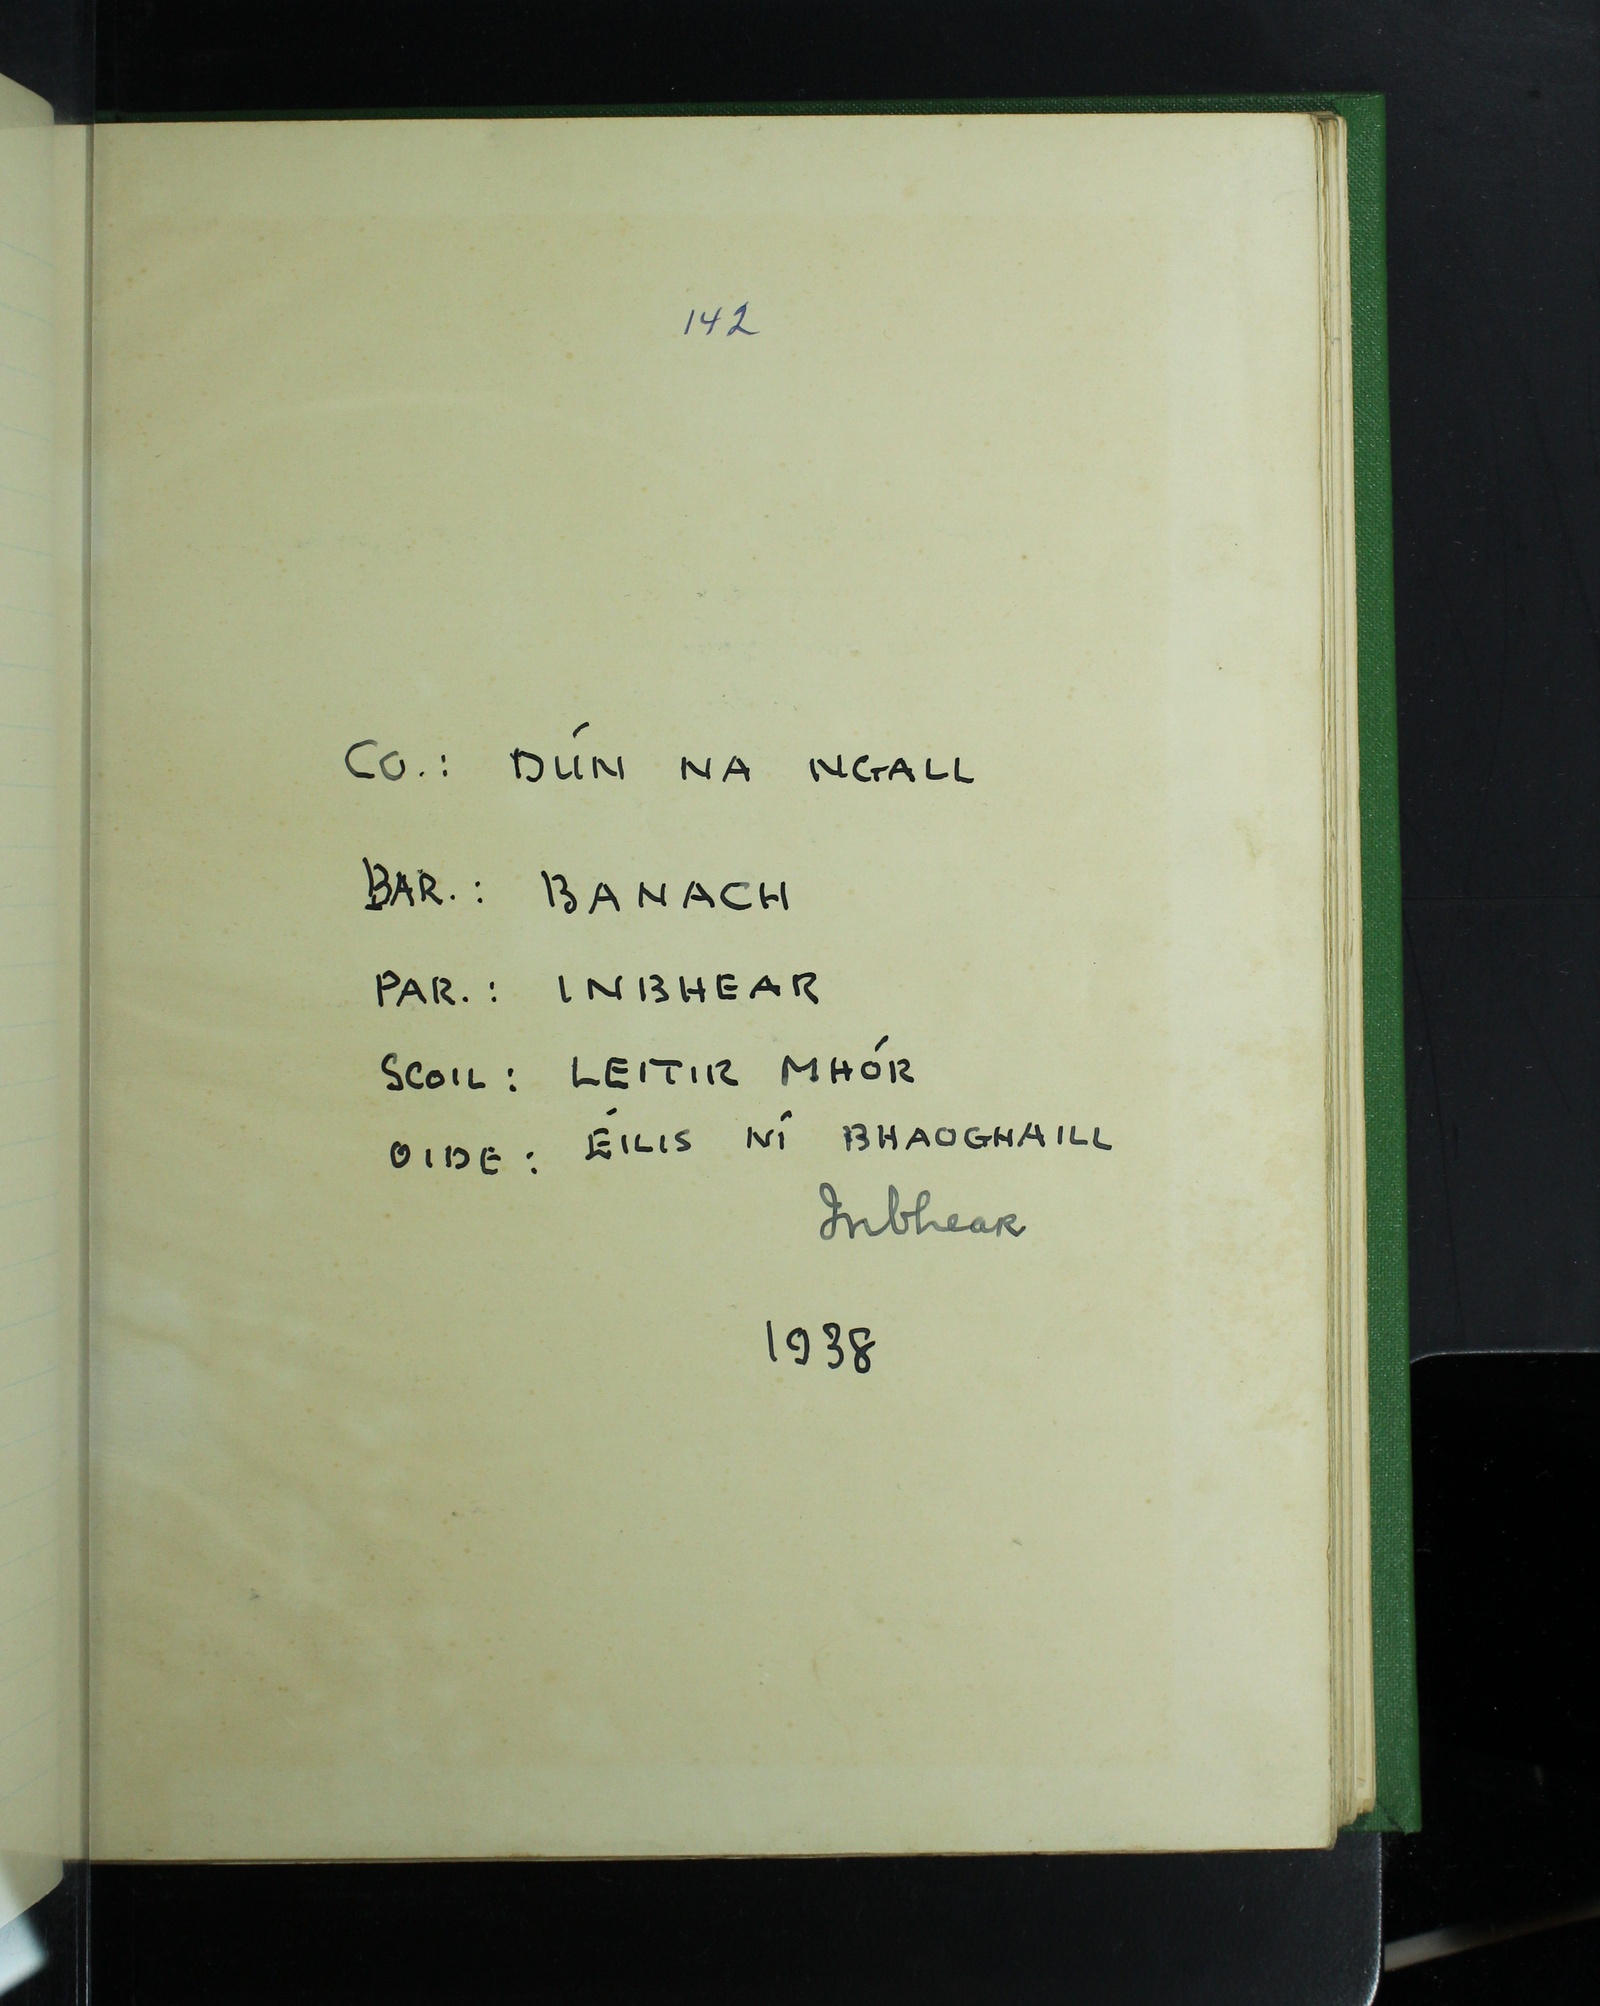 142
CO.: DÚN NA NGALL
BAR.: BANACH
PAR.: INBHEAR
SCOIL: LEITIR MHÓR
OIDE: ÉILIS NÍ BHAOGHAILL
Inbhear
1938